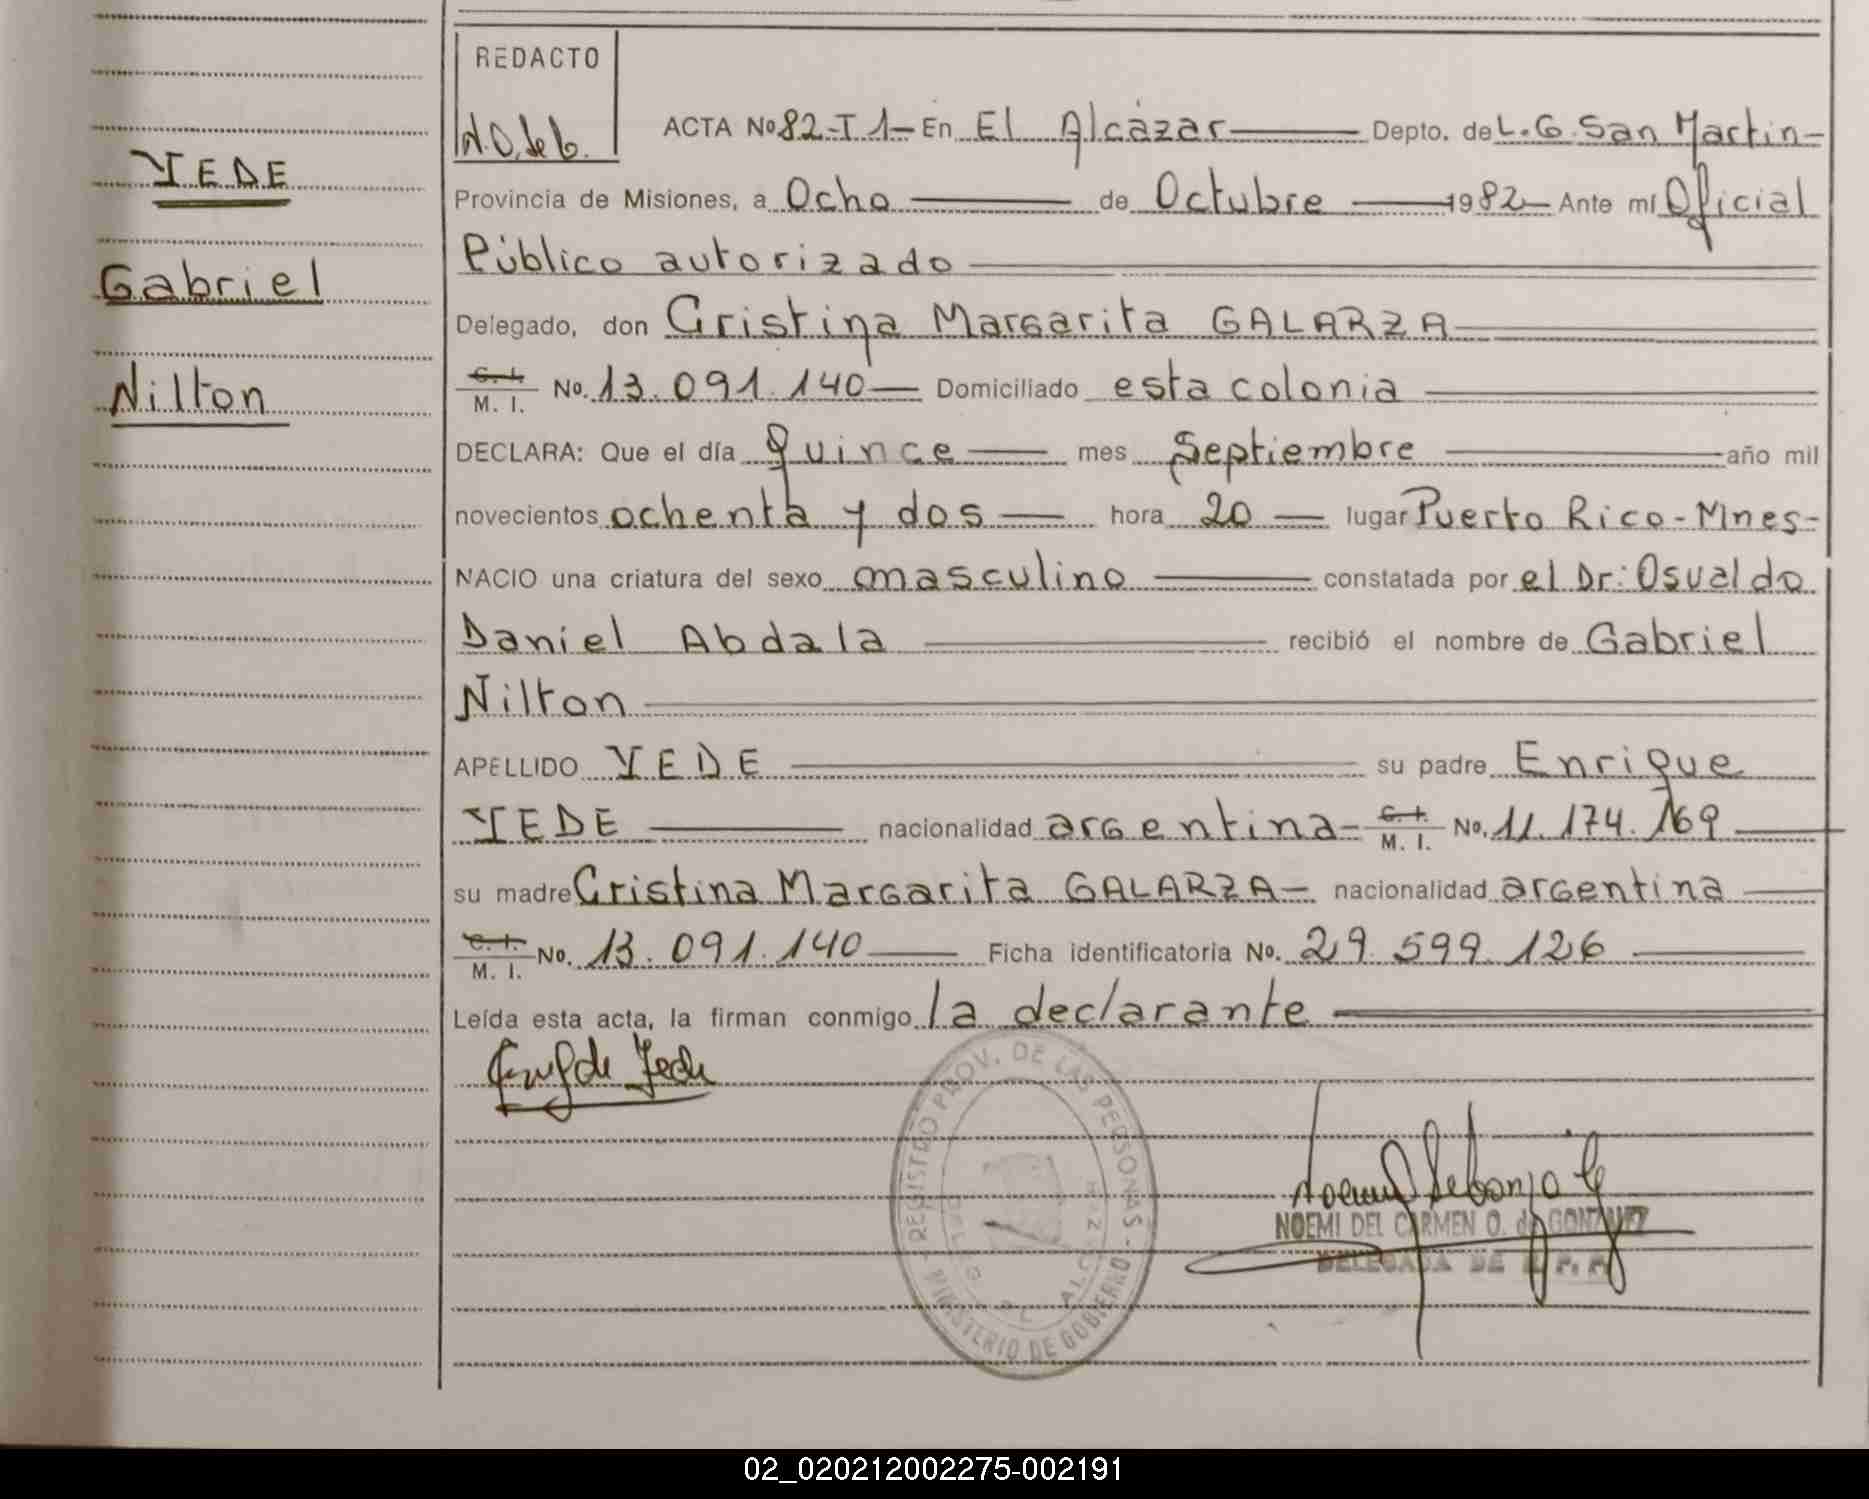 REDACTO
N.O.de G.
ACTA No 82-T 1- En El Alcázar Depto. de L.G. San Martin-
YEDE
Provincia de Misiones, a Ocho de Octubre 1982 Ante mí Oficial
Público autorizado
Gabriel
Delegado, don Cristina Margarita GALARZA
Nilton
C. I. M. I. No. 13.091.140 Domiciliado esta colonia
DECLARA: Que el día quince mes Septiembre año mil
novecientos ochenta y dos hora 20 lugar Puerto Rico-Mnes-
NACIO una criatura del sexo masculino constatada por el Dr: Osvaldo
Daniel Abdala recibió el nombre de Gabriel
Nilton
APELLIDO YEDE su padre Enrique
YEDE nacionalidad argentina- C. I. M. I. No. 11.174.169
su madre Cristina Margarita GALARZA- nacionalidad argentina
C. I. M. I. No. 13.091.140 Ficha identificatoria No. 29.599.126
Leída esta acta, la firman conmigo la declarante
de Yede
REGISTRO PROV. DE LAS PERSONAS - MINISTERIO DE GOBIERNO
NOEMI DEL CARMEN O. de GONZALEZ
DELEGADA DE R. P. P.
02_020212002275-002191